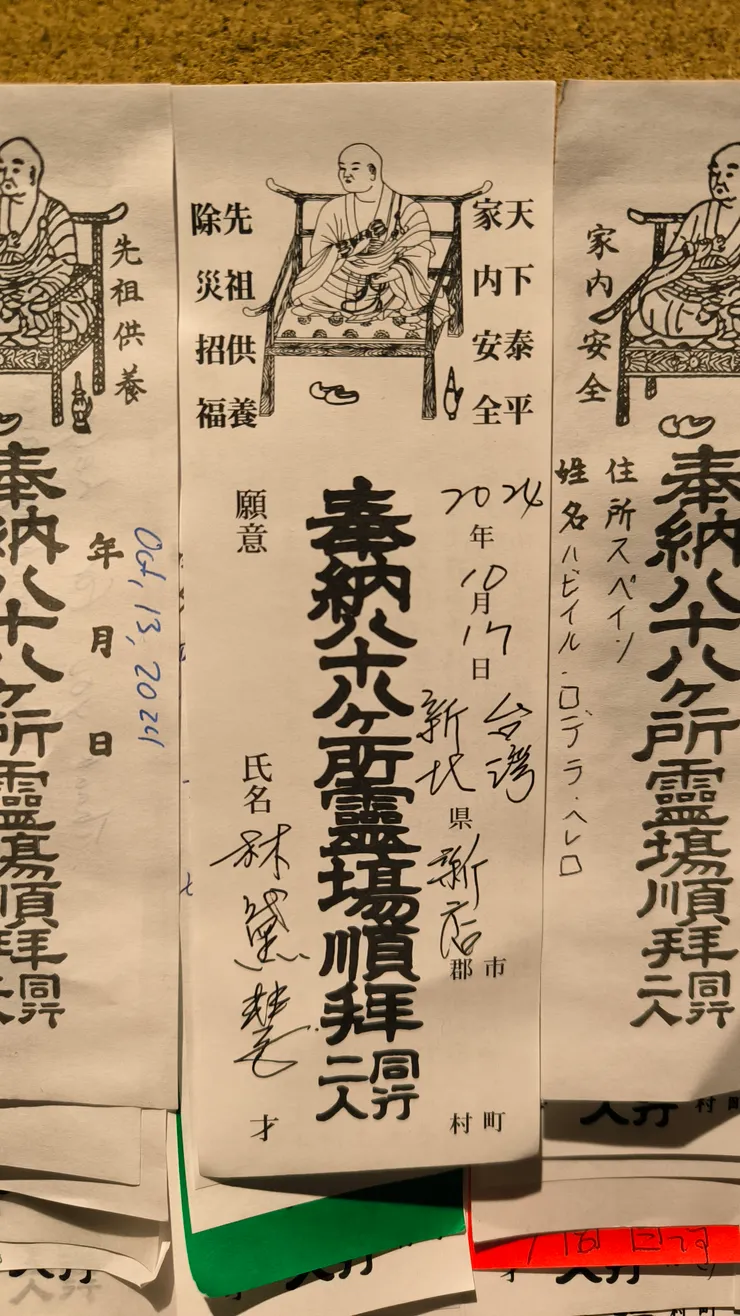 先祖供養
奉納八十八ケ所靈場順拜
同行二人
年 月 日
Oct, 13, 2024
天下泰平
家内安全
先祖供養
除災招福
2024年10月17日
台灣
新北県
新店
市
郡
町
村
奉納八十八ケ所靈場順拜
同行二人
願意
氏名 林黛
才
家内安全
住所スペイン
姓名ハビイル・ロデラ・ヘレロ
奉納八十八ケ所靈場順拜
同行二人